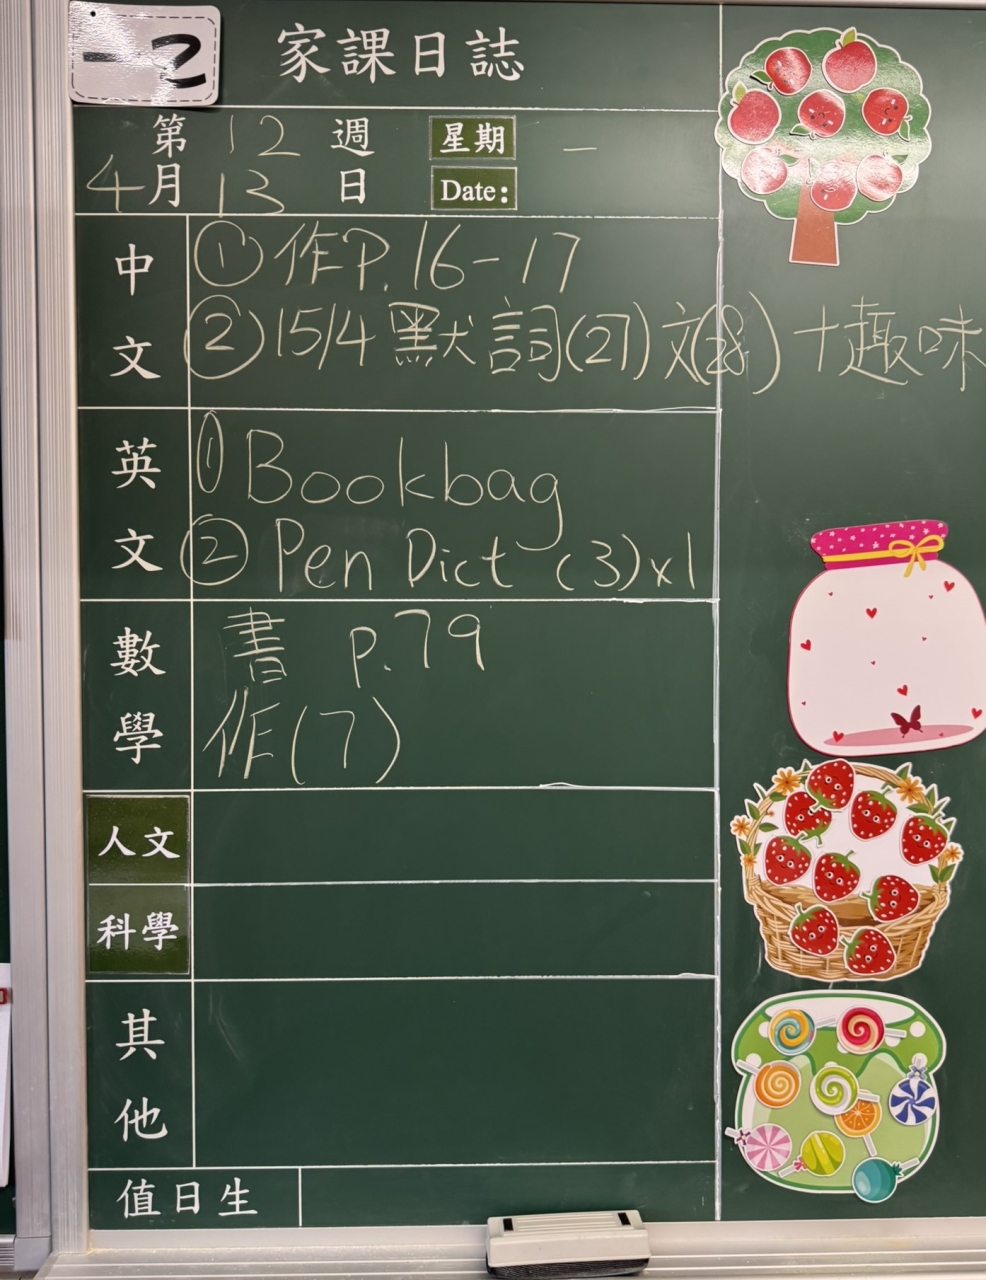 一 2
家課日誌
第 12 週 星期 一
4月 13 日 Date:
中文
①作P.16-17
②15/4 默 詞(27)文(28) +趣味
英文
① Bookbag
② Pen Dict (3)x1
數學
書 p.79
作(7)
人文
科學
其他
值日生